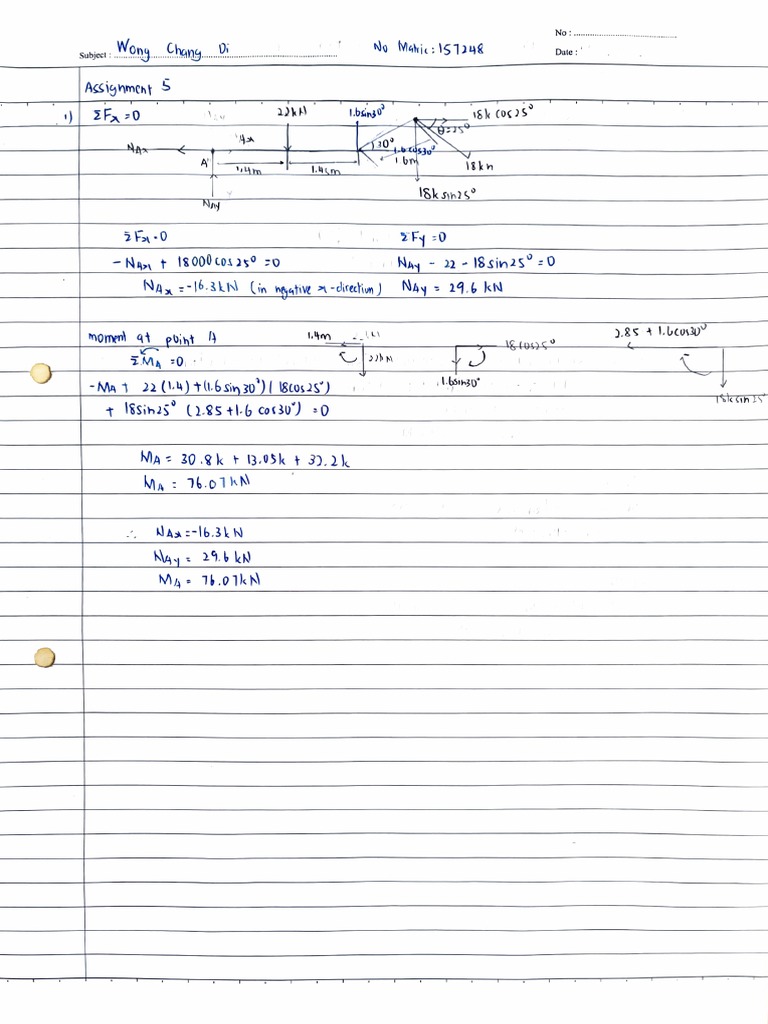 No :
Subject : Wong Chang Di No Matric : 157248
Date :
Assignment 5
1) ΣFx = 0
22kN 1.6sin30° 18k cos25°
NAx A 30° θ=25°
1.6cos30°
1.4m 1.45m 1.6m 18kN
NAy 18k sin25°
ΣFx = 0 ΣFy = 0
-NAx + 18000cos25° = 0 NAy - 22 - 18sin25° = 0
NAx = -16.3kN (in negative x-direction) NAy = 29.6 kN
moment at point A 1.4m 18cos25° 2.85 + 1.6cos30°
ΣMA = 0 22kN 1.6sin30° 18k sin25°
-MA + 22(1.4) + (1.6sin30°)(18cos25°)
+ 18sin25° (2.85 + 1.6 cos30°) = 0
MA = 30.8k + 13.05k + 32.2k
MA = 76.07kN
∴ NAx = -16.3kN
NAy = 29.6 kN
MA = 76.07kN